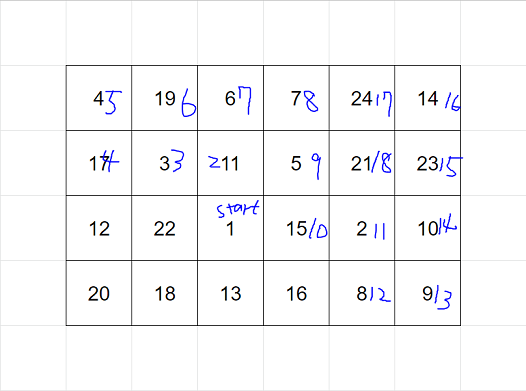 4 5 19 6 6 7 7 8 24 17 14 16
17 4 3 3 2 11 5 9 21 18 23 15
start
12 22 1 15 10 2 11 10 14
20 18 13 16 8 12 9 13